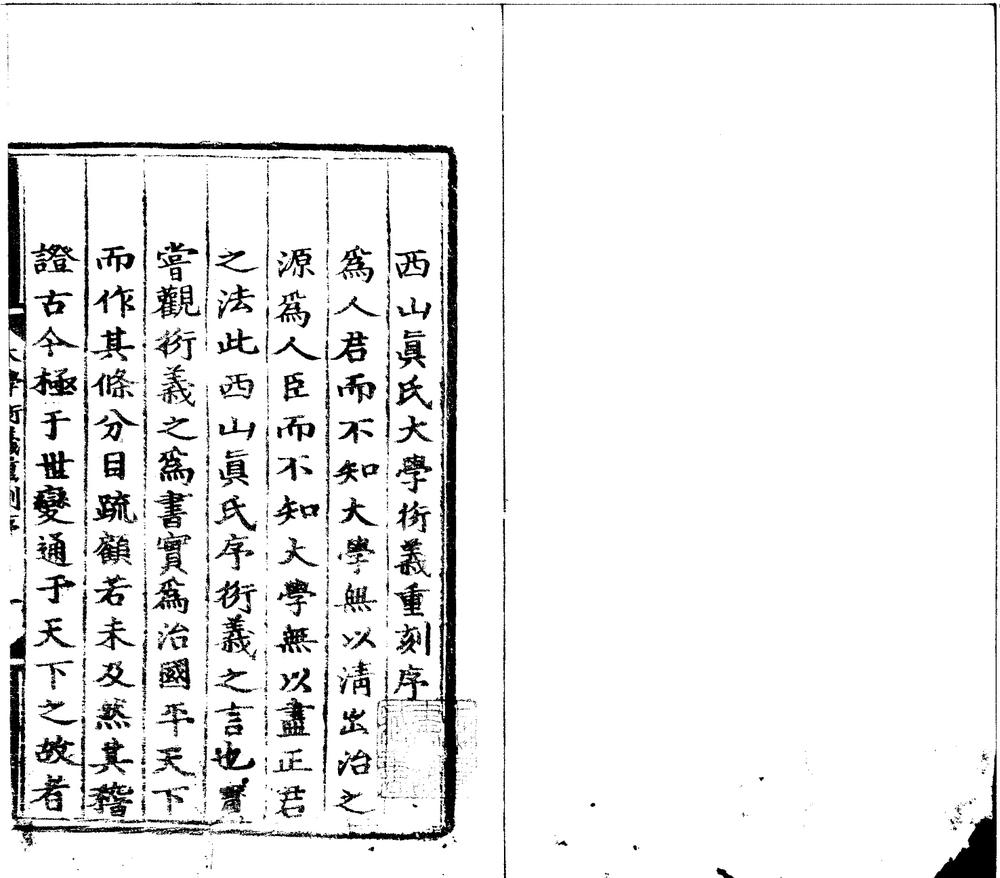 西山眞氏大學衍義重刻序
爲人君而不知大學無以淸出治之
源爲人臣而不知大學無以盡正君
之法此西山眞氏序衍義之言也
嘗觀衍義之爲書實爲治國平天下
而作其條分目疏顧若未及然其稽
證古今極于世變通于天下之故者
大學衍義重刻序